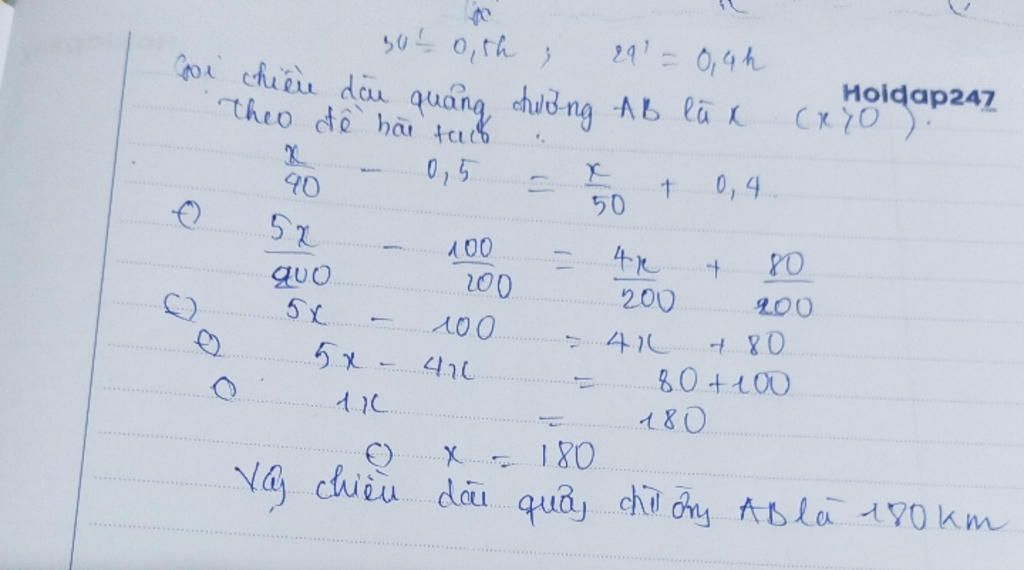 30' = 0,5h ; 24' = 0,4h
Hoidap247
Gọi chiều dài quãng đường AB là x (x>0).
Theo đề bài ta có :
x/40 - 0,5 = x/50 + 0,4
⇔ 5x/200 - 100/200 = 4x/200 + 80/200
⇔ 5x - 100 = 4x + 80
⇔ 5x - 4x = 80+100
⇔ 1x = 180
⇔ x = 180
Vậy chiều dài quãng đường AB là 180km